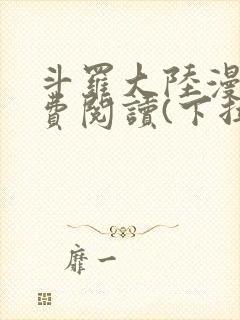 斗羅大陸漫
費閱讀(下拉
靡一